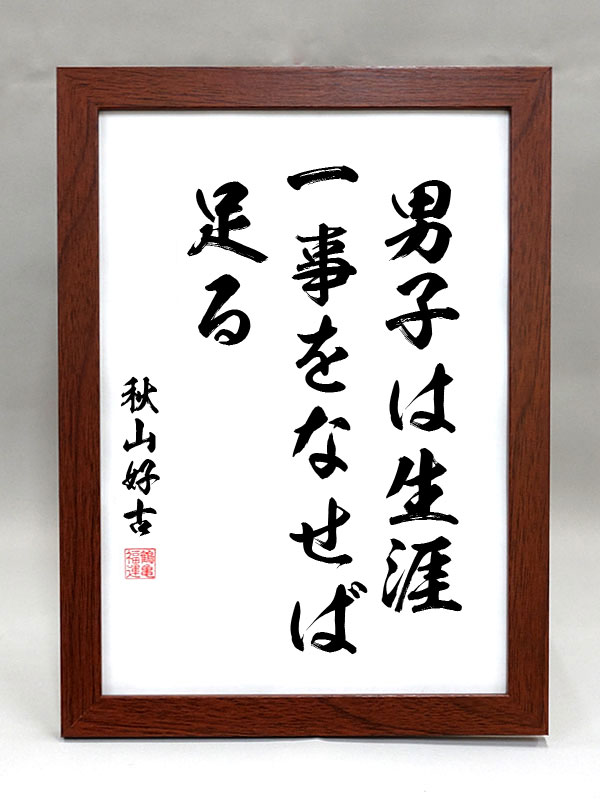 男子は生涯
一事をなせば
足る
秋山好古
鶴亀
福運